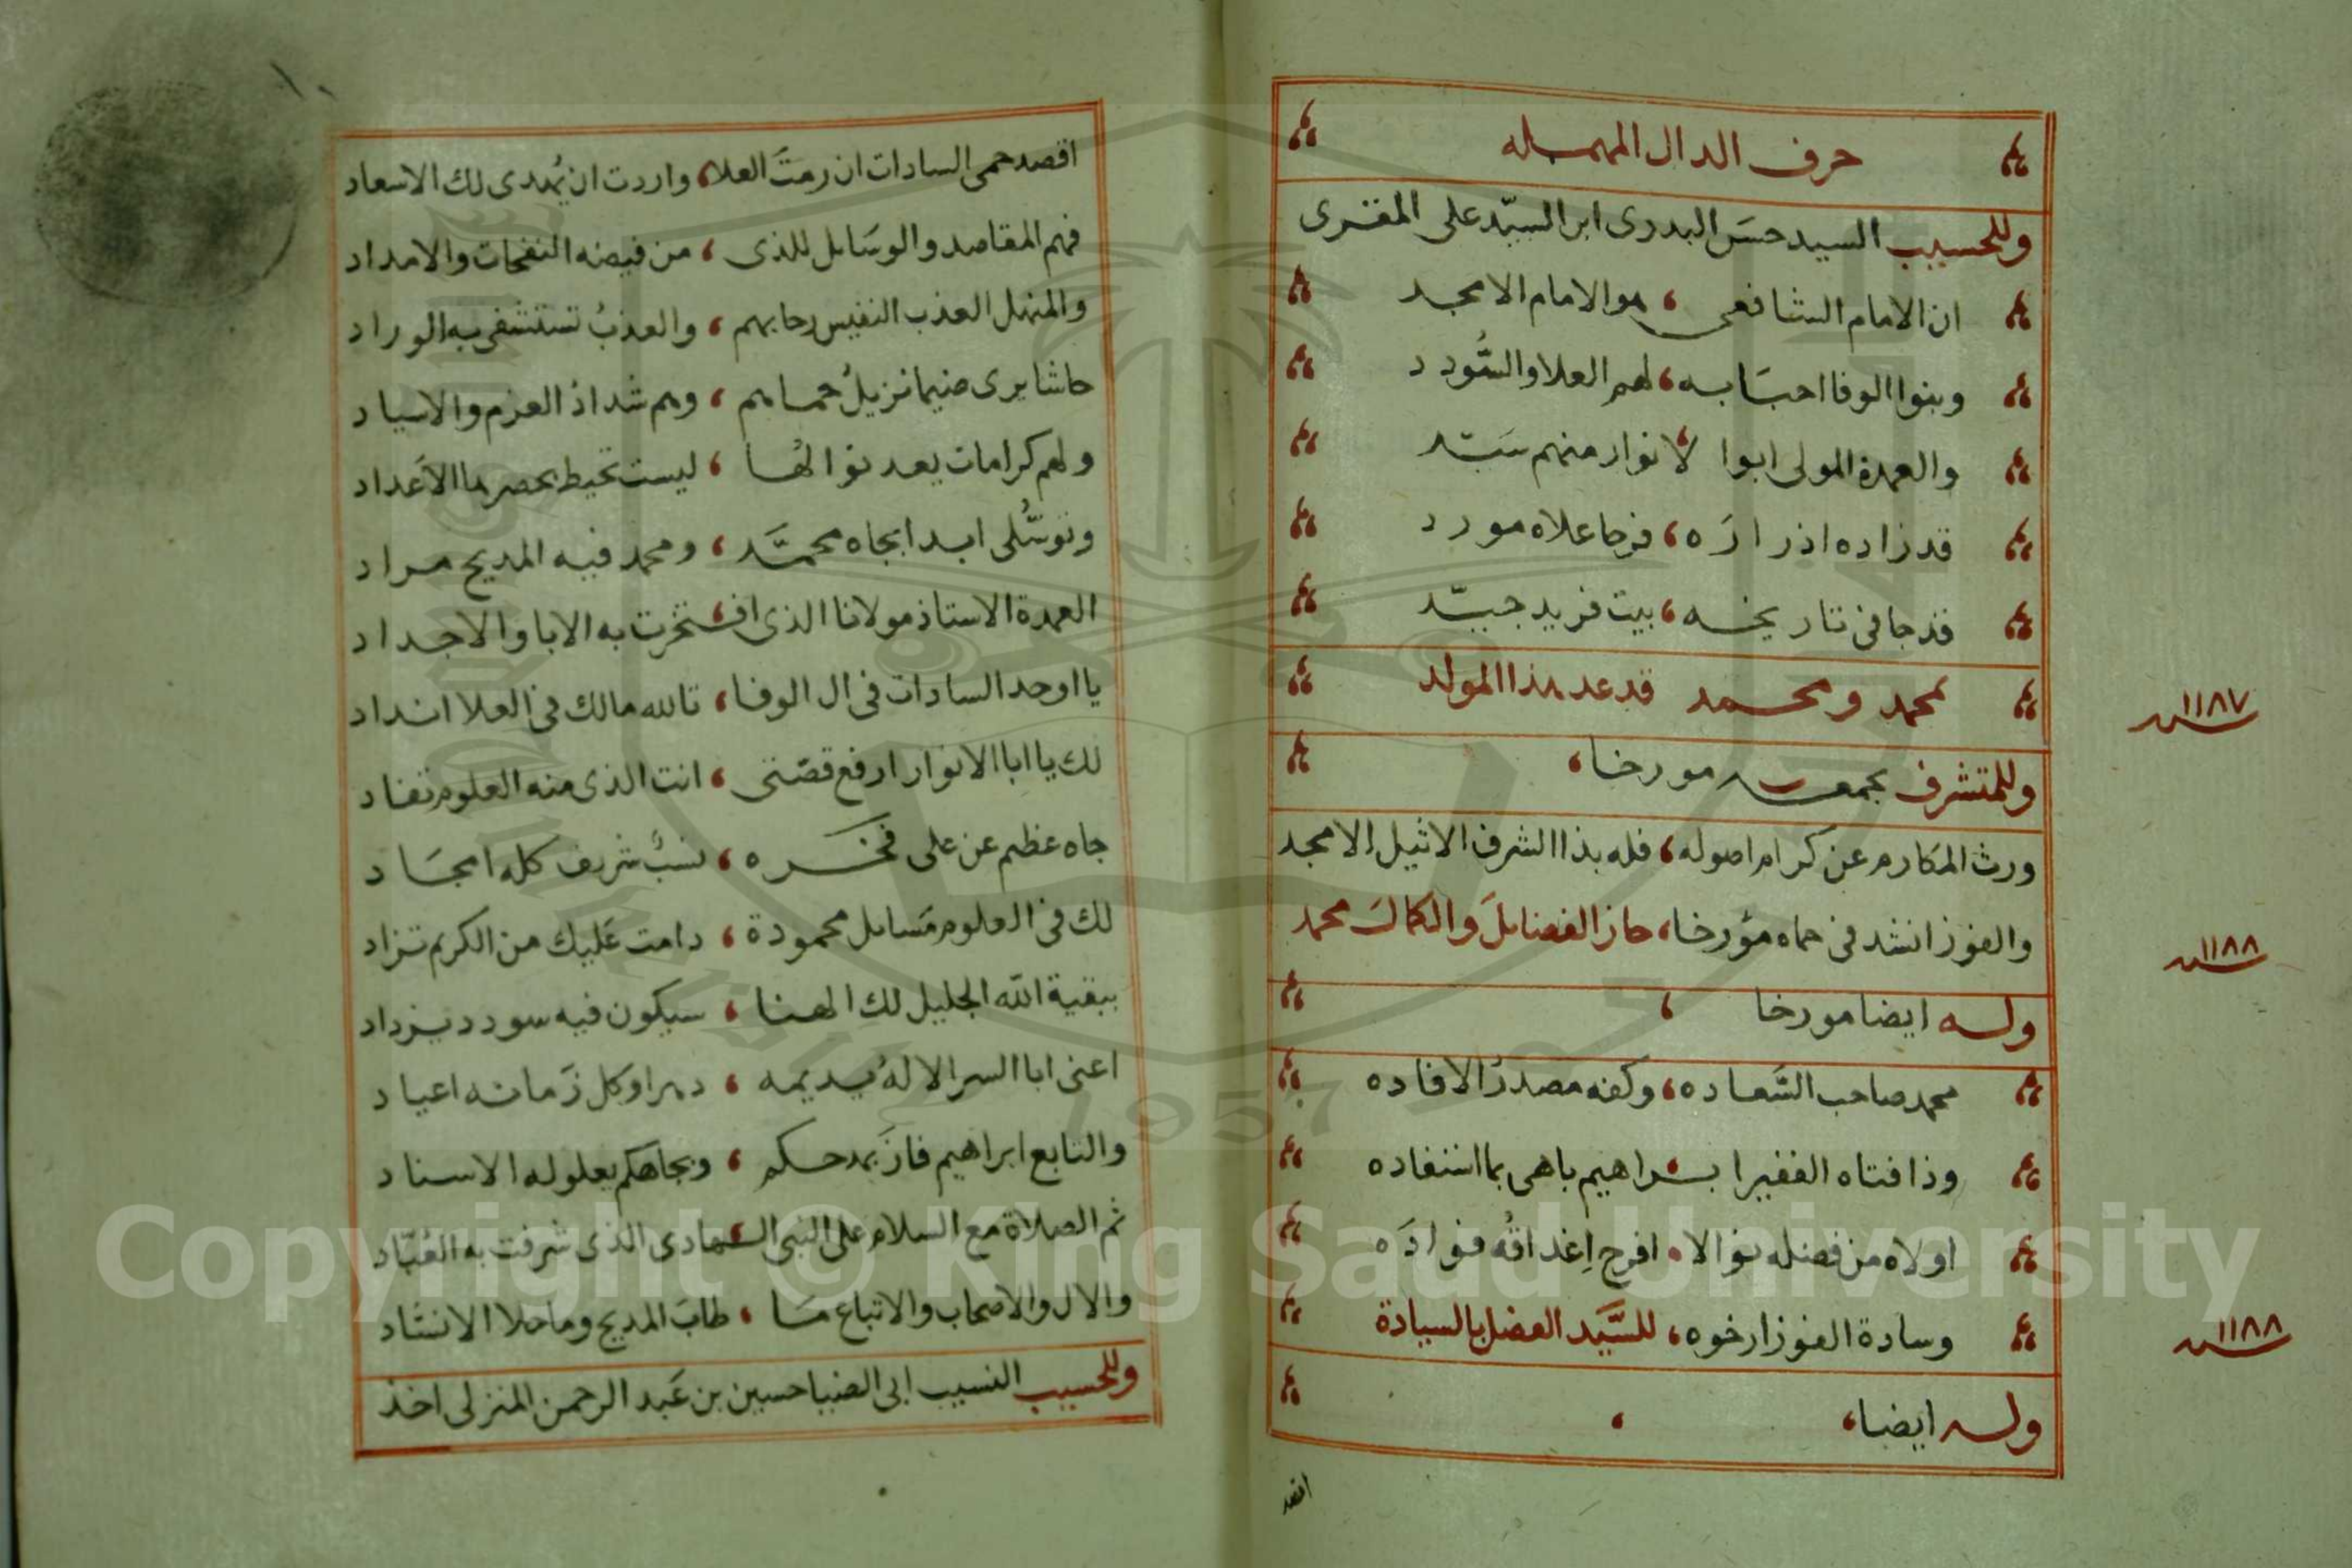 حرف الدال المهمله
وللحسيب السيد حسن البدرى ابن السيد على المقرى
ان الامام الشافعى ، هو الامام الامجد
وبنوا الوفا احبابه ، لهم العلا والسُّودد
والعمدة المولى ابوا لانوار منهم سيد
قد زاده اذ زاره ، فرحا علاه مورد
قد جا فى تاريخه ، بيت فريد جيّد
لمحمد ومحمد قد عد هذا المولد
١١٨٧ سنه
وللمتشرف بجمعه مورخا ،
ورث المكارم عن كرام اصوله ، فله بذا الشرف الاثيل الامجد
والفوز انشد فى حماه مؤرخا ، حاز الفضايلَ والكمالَ محمد
١١٨٨ سنه
وله ايضا مورخا ،
محمد صاحب السَّعاده ، وكفه مصدرُ الافاده
وذا فتاه الفقير ابراهيم باهى بما استفاده
اولاه من فضله نوالا ، افرح اغداقُه فوادَه
وسادة الفوز ارخوه ، للسَّيد الفضل بالسيادة
١١٨٨ سنه
وله ايضا ،
اقصد
اقصد حمى السادات ان رمتَ العلا ، واردت ان يُهدى لك الاسعاد
فهم المقاصد والوسَايل للذى ، من فيضه النفحات والامداد
والمنهل العذب النفيس رحابهم ، والعذبُ تستشفى به الوراد
حاشا يرى ضيما نزيلُ حماهم ، وهم شداد العزم والاسياد
ولهم كرامات يعد نوالُها ، ليست تحيط بحصرها الاعداد
وتوسُّلى ابدا بجاه محمَّد ، ومحمد فيه المديح مراد
العمدة الاستاذ مولانا الذى افتخرت به الابا والاجداد
يا اوحد السادات فى ال الوفا ، تالله مالك فى العلا انداد
لك يا ابا الانوار ارفع قصّتى ، انت الذى منه العلوم تفاد
جاه عظيم عن على فخره ، نسبٌ شريف كله امجَاد
لك فى العلوم مَسايل محمودة ، دامت عَليك من الكريم تزاد
ببقية الله الجليل لك الهنا ، سيكون فيه سودد يزداد
اعنى ابا السر الالهُ يديمه ، دهرا وكل زَمانه اعياد
والتابع ابراهيم فازَ بمدحكم ، وبجاهكم يعلو له الاسناد
ثم الصلاة مع السلام على النبى الهادى الذى شرفت به العُبّاد
والال والاصحاب والاتباع مَا ، طابَ المديح وما حلا الانشاد
وللحسيب النسيب ابى الضيا حسين بن عَبد الرحمن المنزلى اخذ
Copyright © King Saud University
1957